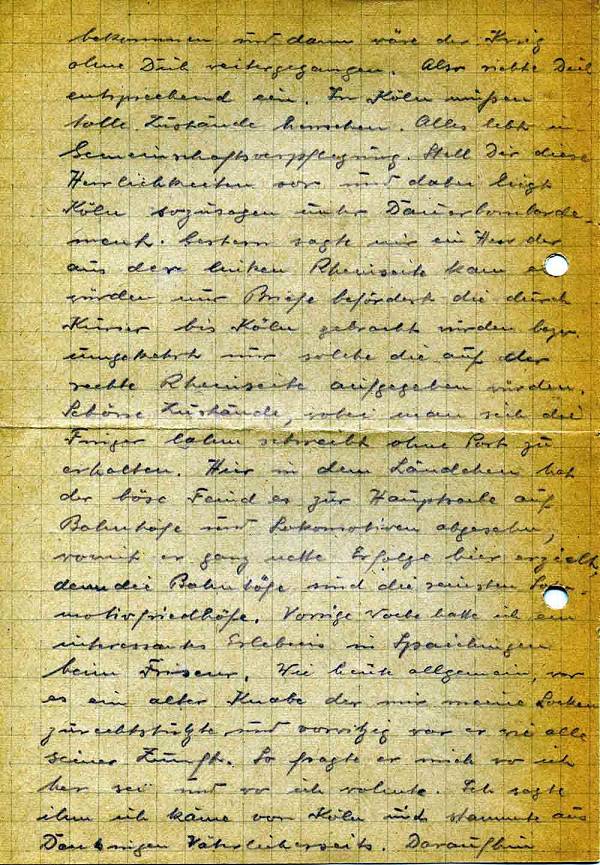 bekommen und dann wäre der Krieg
ohne Dich weitergegangen. Also richte Dich
entsprechend ein. In Köln müssen
tolle Zustände herrschen. Alles lebt in
Gemeinschaftsverpflegung. Stell Dir diese
Herrlichkeiten vor und dabei liegt
Köln sozusagen unter Dauerbombarde-
ment. Gestern sagte mir ein Herr der
aus der linken Rheinseite kam es
würden nur Briefe befördert die durch
Kurier bis Köln gebracht würden bezw.
umgekehrt nur solche die auf der
rechte Rheinseite aufgegeben würden.
Schöne Zustände, wobei man sich die
Finger lahm schreibt ohne Post zu
erhalten. Hier in dem Ländchen hat
der böse Feind es zur Hauptsache auf
Bahnhöfe und Lokomotiven abgesehn,
womit er ganz nette Erfolge hier erzielt,
denn die Bahnhöfe sind die reinsten Loko-
motivfriedhöfe. Vorige Woche hatte ich ein
interessantes Erlebnis in Spaichingen
beim Friseur. Wie heute allgemein, war
es ein alter Knabe der mir meine Locken
zurechtstutzte und vorwitzig war er wie alle
seiner Zunft. So fragte er mich wo ich
her sei und wo ich wohnte. Ich sagte
ihm ich käme von Köln und stammte aus
väterlicherseits. Daraufhin